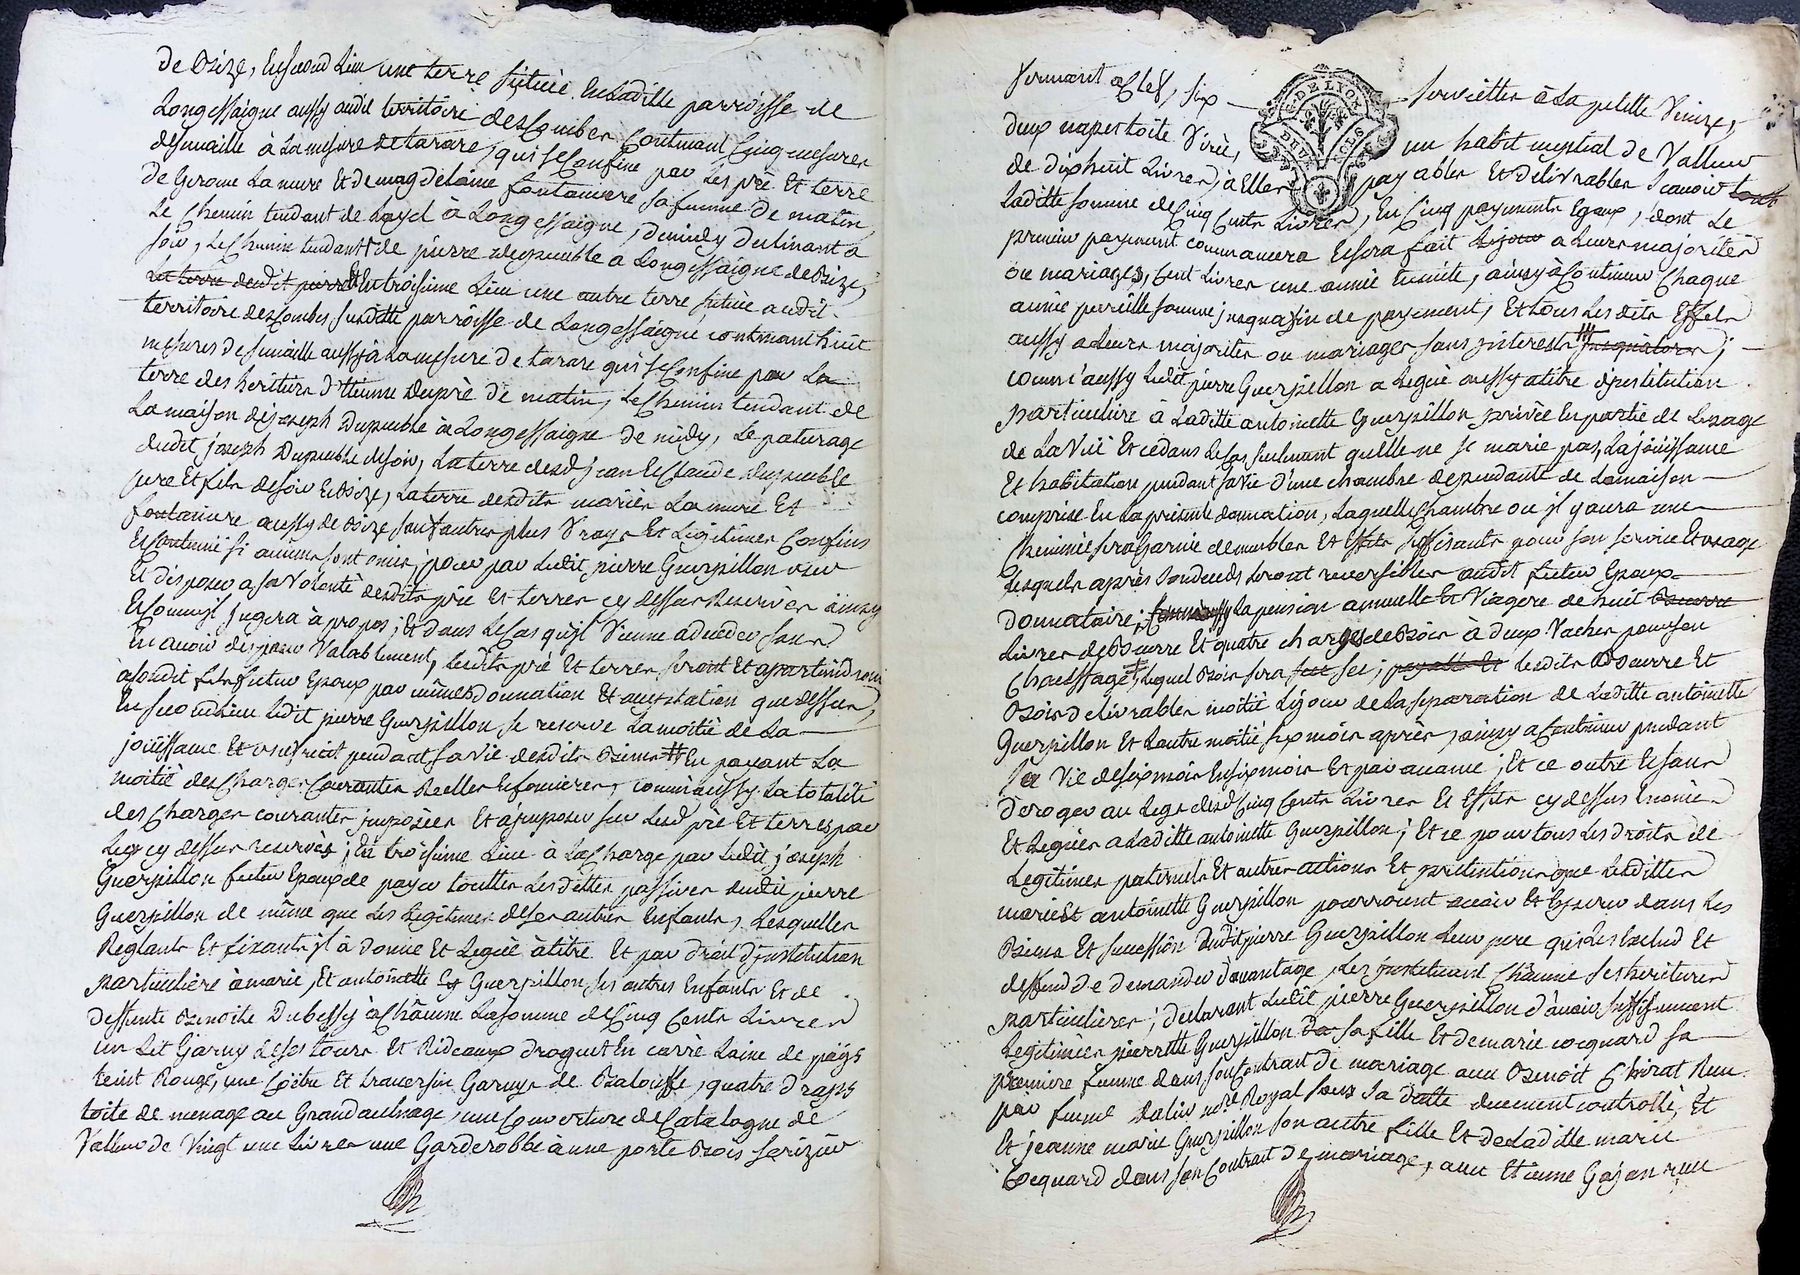 de Bize, En second Lieu une terre située En Laditte parroisse de
Longessaigne aussy audit territoire des Combes Contenant Cinq mesures
de semaille à la mesure de tarare, qui se Confine par Les pré Et terre
de Gerome La mure Et de magdelaine fontaniere sa femme de matin,
Le Chemin tendant de à Longessaigne, de midy declinant à
soir, Le Chemin tendant de pierre Dupeuble a Longessaigne de Bize,
La terre dudit pierre En troisieme Lieu une autre terre située audit
territoire des Combes susditte parroisse de Longessaigne contenant huit
mesures de semaille aussy à la mesure de tarare qui se Confine par La
terre des heritiers d'Etienne Dupré de matin, Le Chemin tendant de
La maison de joseph Dupeuble à Longessaigne de midy, Le paturage
dudit joseph Dupeuble de soir, La terre desd. jean Et Claude Dupeuble
pere Et fils de soir Et Bize, La terre desdits mariés La mure Et
fontaniere aussy de Bize, sauf autres plus Vrays Et Legitimes Confins
Et Contenue si aucuns sont omis; pour par Ledit pierre Guerpillon user
Et disposer a sa Volonté desdits pré Et terres cy dessus Reservés ainsy
Et Comm'il jugera à propos; Et dans Le Cas qu'il Vienne a deceder sans
En avoir disposer Valablement, Lesdits pré Et terres seront Et apartiendront
à sondit fils futur Epoux par même donnation Et que dessus,
En second Lieu Ledit pierre Guerpillon se reserve La moitié de La
joüissance Et usufruit pendant sa vie desdits Biens En payant La
moitié des Charges Courantes Reelles Et foncieres, comm'aussy La totalité
des Charges courantes imposées Et à imposer sur Lesd. pré Et terres par
Luy cy dessus reservés; En troisieme Lieu à La Charge par Ledit joseph
Guerpillon futur Epoux de payer touttes Les dettes passives dudit pierre
Guerpillon de même que Les Legitimes de ses autres Enfants, Lesquelles
Reglant Et fixant il à donné Et Legué à titre Et par droit d'institution
particuliere à marie, Et antoinette Guerpillon ses autres Enfants Et de
deffunte Benoite Dubessy à Châcune La somme de Cinq Cents Livres
un Lit Garny de ses tours Et Rideaux droguet En carré Laine de païs
teint Rouge, une Coëtre Et traversin Garnys de Balouffe, quatre draps
toile de menage au Grand aulnage, une Couverture de Catalogne de
Valleur de Vingt une Livres une Garderobbe à une porte Bois serizier
fermant a Clef, six serviettes à la petite Venize,
deux napes toile Virée, un habit nuptial de Valleur
de dixhuit Livres, à Elles payables Et delivrables Scavoir tout
Laditte somme de Cinq Cents Livres, En Cinq payements Egaux, dont Le
premier payement commancera Et sera fait Lejour a Leurs majorités
ou mariages, Cent Livres une année Ensuite, ainsy à Continuer Chaque
année pareille somme jusqu'a fin de payement, Et tous Lesdits Effets
aussy a Leurs majorités ou mariages sans interests jusqu'alors;
comm'aussy Ledit pierre Guerpillon a Legué aussy a titre d'institution
particuliere à Laditte antoinette Guerpillon privée En partie de L'usage
de La Vuë Et ce dans Le Cas seulement qu'elle ne se marie pas, La joüissance
Et habitation pendant sa Vie d'une chambre dependante de La maison
comprise En La présente donnation, Laquelle Chambre ou il y aura une
Cheminée sera Garnie de meubles Et Effets suffisants pour son service Et usage
Lesquels après son deceds seront reversibles audit futur Epoux
donnataire; Comm'aussy La pension annuelle Et Viagere de huit Beurre
Livres de Beurre Et quatre charges de Bois à deux Vaches pour son
Chauffage, Lequel Bois sera sec; payable Et Lesdits Beurre Et
Bois delivrables moitié Le jour de La separation de Laditte antoinette
Guerpillon Et L'autre moitié six mois après, ainsy a Continuer pendant
sa Vie de six mois En six mois Et par avance; Et ce outre Et sans
deroger au Legs desd. Cinq Cents Livres Et Effets cy dessus Enoncés
Et Legués a Laditte antoinette Guerpillon; Et ce pour tous Les droits de
Legitimes paternels Et autres actions Et prétentions que Lesdittes
marie Et antoinette Guerpillon pourroient avoir Et Esperer dans Les
Biens Et succession dudit pierre Guerpillon Leur pere qui Les Exclud Et
deffend de demander davantage, Les instituant Châcune ses heritieres
particulieres; declarant Ledit pierre Guerpillon d'avoir suffisemment
Legitimées pierrette Guerpillon sa fille Et de marie cocquard sa
premiere femme dans son Contrat de mariage avec Benoit Chirat Reçu
par feu me Dalin nore Royal sous sa Datte duement controllé, Et
Et jeanne marie Guerpillon son autre fille Et de Laditte marie
Cocquard dans son Contrat de mariage, avec Etienne Gojon reçu
DE LYON
DEUX SOLS